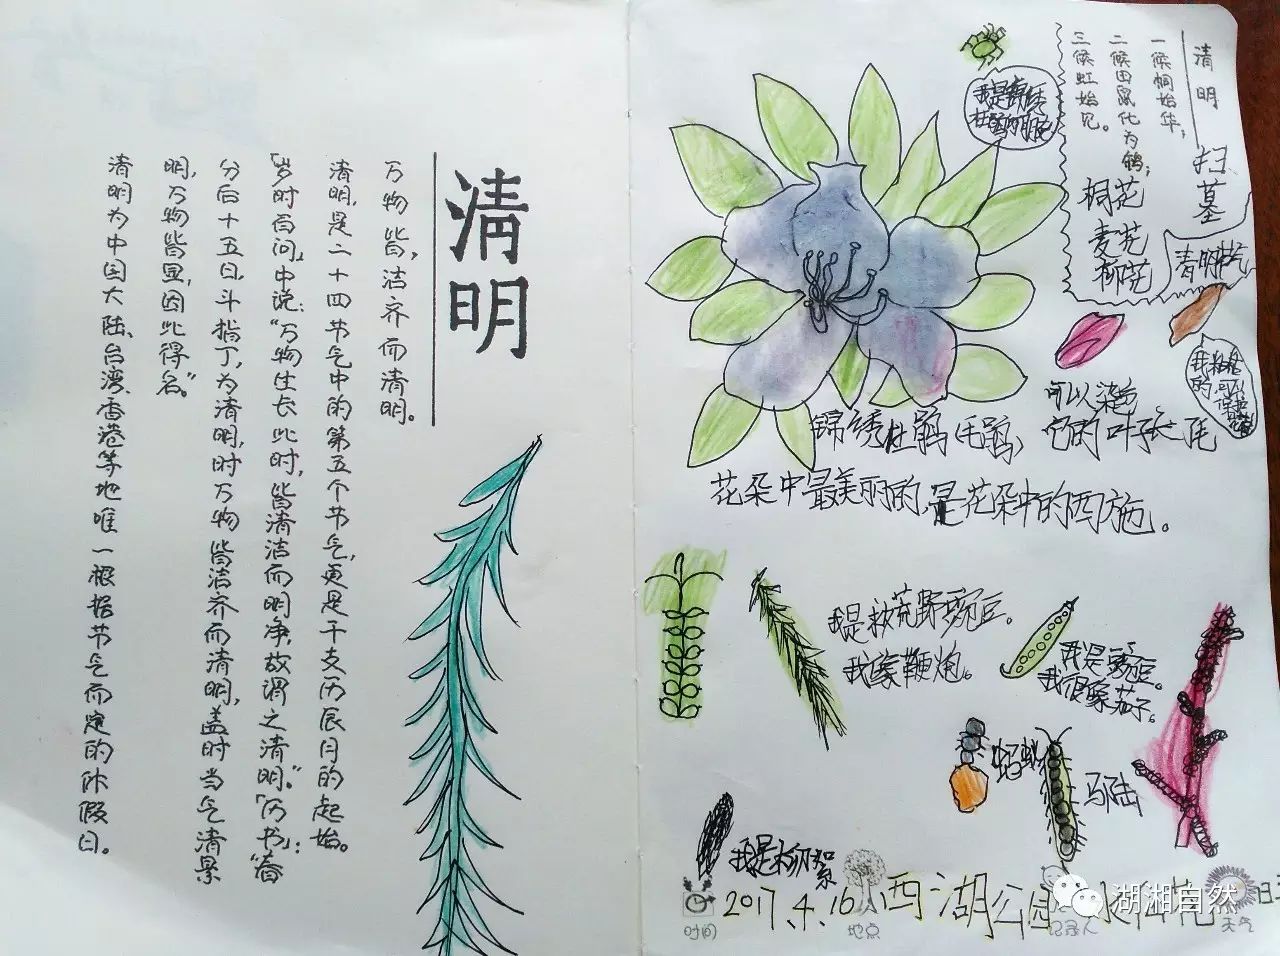 清明
万物皆，洁齐而清明。
清明，是二十四节气中的第五个节气，更是干支历辰月的起始。
「岁时百问」中说：“万物生长此时，皆清洁而明净，故谓之清明。”「历书」：“春
分后十五日，斗指丁，为清明，时万物皆洁齐而清明，盖时当气清景
明，万物皆显，因此得名。”
清明为中国大陆、台湾、香港等地唯一根据节气而定的休假日。
清明
一候桐始华；
二候田鼠化为鴽；
三候虹始见。
扫墓
桐花
麦花
柳花
可以染色
锦绣杜鹃（毛鹃）它的叶长毛
花朵中最美丽的，是花朵中的西施。
我是救荒野豌豆。
我像鞭炮。
我是豌豆。
我很像茄子。
蚂蚁
马陆
我是柳絮
2017.4.16
西湖公园
时间
地点
记录人
天气
湖湘自然